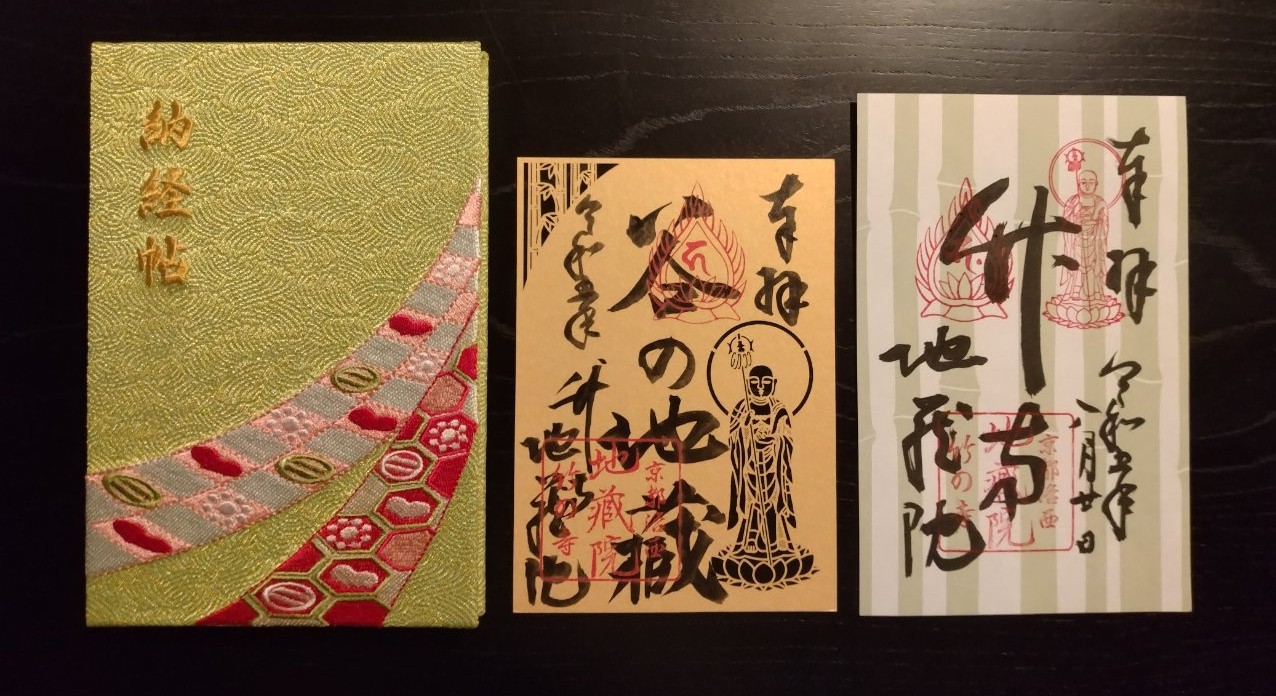 納経帖
奉拝
谷の地蔵
令和五年
地蔵院
京都洛西
地藏院
竹の寺
奉拝
令和五年
月廿日
竹寺
地蔵院
京都洛西
地藏院
竹の寺